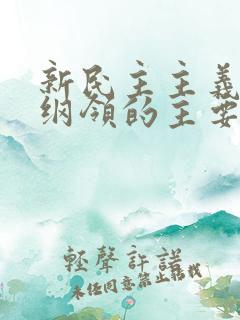 新民主主義
纲領的主要
輕聲許諾
未经同意禁止转载